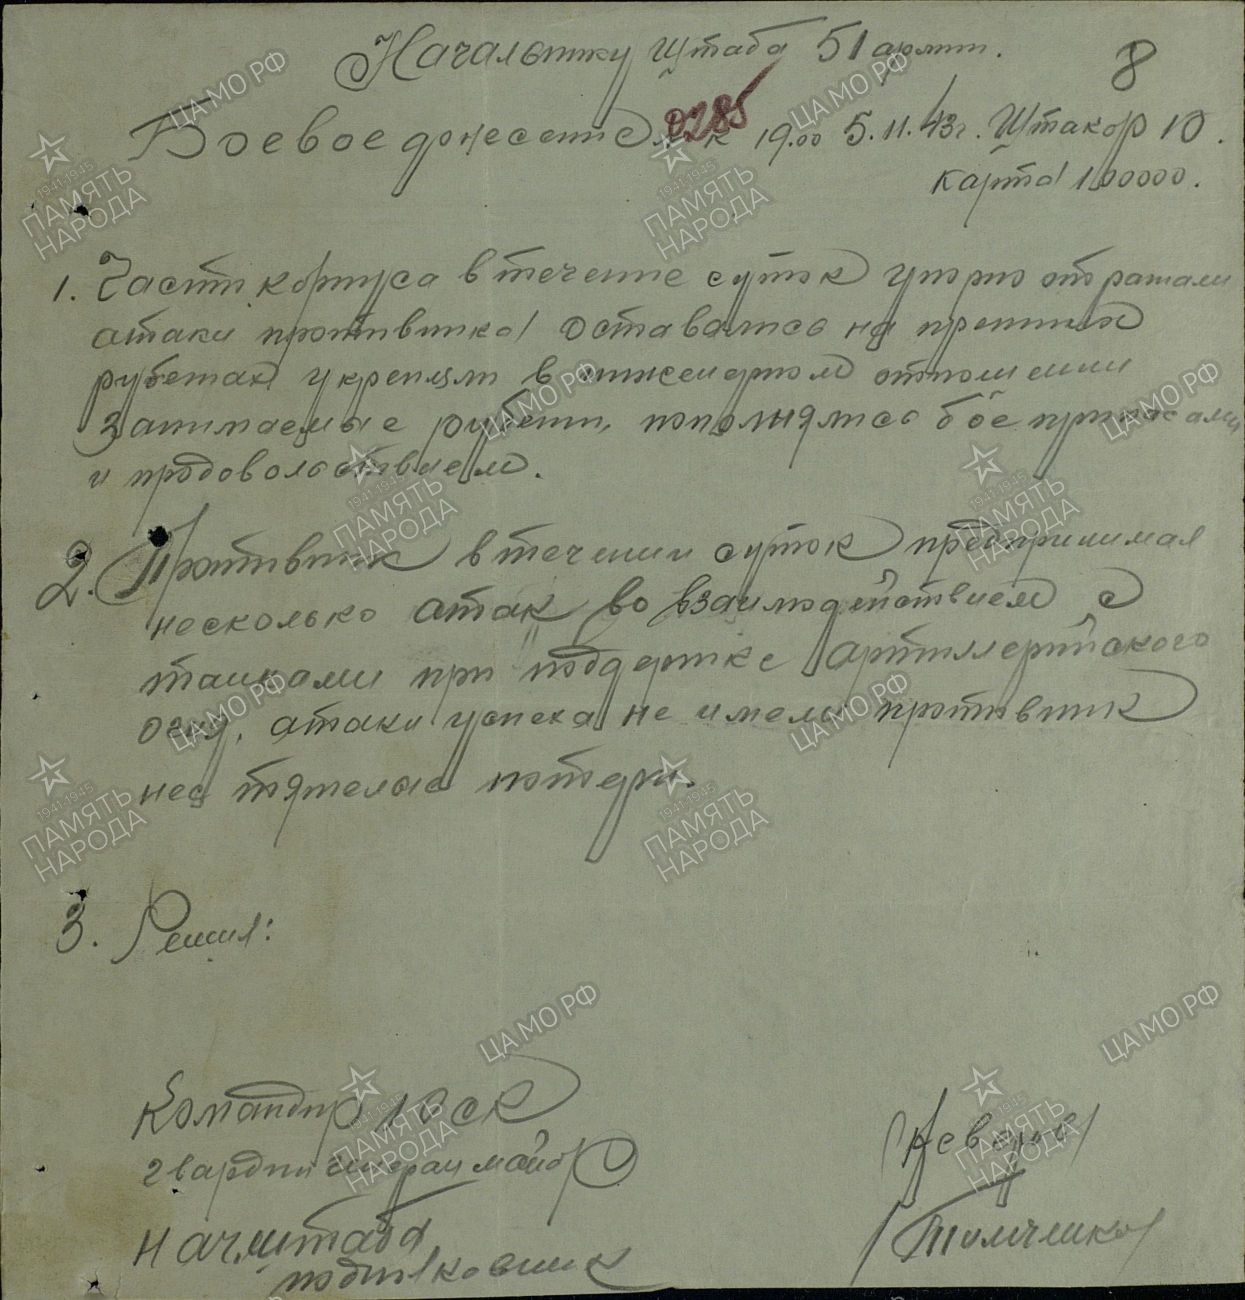 Начальнику штаба 51 армии.
8
Боевое донесение № 0285 к 19.00 5.11.43г. Штакор 10.
карта 100000.
1. Части корпуса в течение суток упорно отражали
атаки противника оставались на прежних
рубежах укрепляли в инженерном отношении
занимаемые рубежи, пополнялись бое припасами
и продовольствием.
2. Противник в течении суток предпринимал
несколько атак во взаимодействием с
танками при поддержке артиллерийского
огня, атаки успеха не имели противник
нес тяжелые потери.
3. Решил:
Командир 10 ск
гвардии генерал майор Неверов
Начштаба
подполковник
ЦА МО РФ
1941-1945
ПАМЯТЬ
НАРОДА